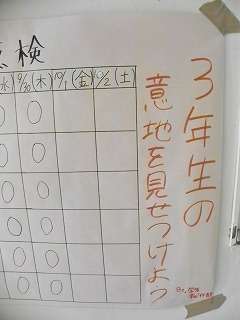 点検
水) 9/30(木) 10/1(金) 10/2(土)
○ ○
○ ○
○ ○
○ ○
○ ○
○ ○
3年生の
意地を見せつけよう